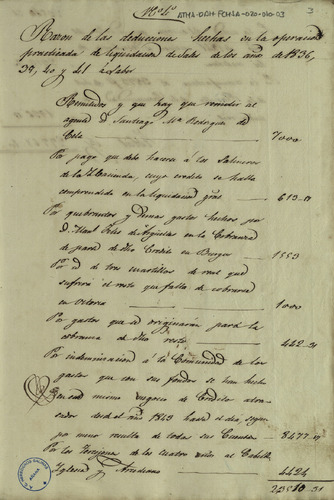 Nº 4º
ATHA-DAH-FCHLA-020-010-03
3
Razon de las deducciones hechas en la operacion
practicada de liquidacion de Sales de los años de 1836,
39, 40 y del
Remitidos y que hay que remitir al
agente D. Santiago Mª Rodriguez de
Cela 7000
Por pago que debe hacerse á los Salineros
de la Hacienda, cuyo credito se halla
comprendido en la liquidacion gral 613-17
Por quebrantos y demas gastos hechos por
D. Manl de Argüelles en la Cobranza
de parte de dho Credito en Burgos 1553
Por id de tres cuartillos de real que
sufrirá el resto que falta de cobrarse
en Vitoria 1000
Por gastos que se originarán para la
cobranza de dho resto 442-31
Por indemnizacion á la Comunidad de los
gastos que con sus fondos se han hecho
en el mismo negocio de Credito atra-
sado desde el año 1843 hasta el dia segun
por menor resulta de todas sus Cuentas 8477-17
Por los de las cuatro Villas al Cabildo
Iglesia y 4424
23510-31